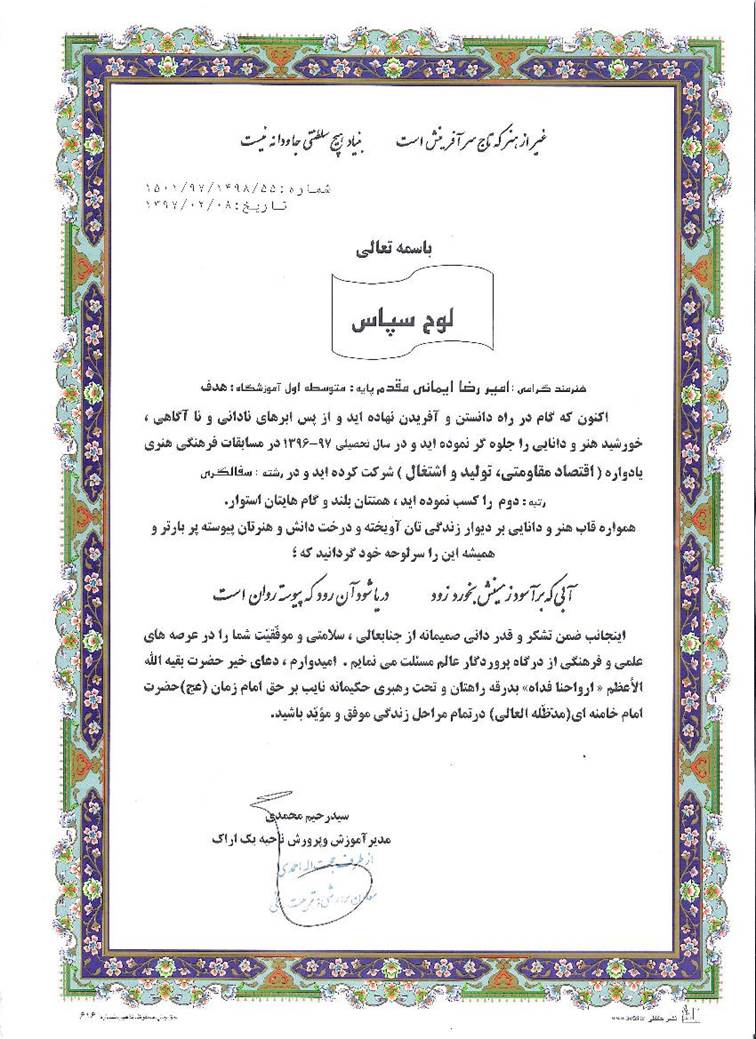 غیر از هنر که تاج سر آفرینش است بنیاد هیچ سلطنتی جاودانه نیست
شماره:۱۵۰۱/۹۷/۱۴۹۸/۵۵
تاریخ:۱۳۹۷/۰۲/۰۸
باسمه تعالی
لوح سپاس
هنرمند گرامی : امیر رضا ایمانی مقدم پایه : متوسطه اول آموزشگاه : هدف
اکنون که گام در راه دانستن و آفریدن نهاده اید و از پس ابرهای نادانی و نا آگاهی ،
خورشید هنر و دانایی را جلوه گر نموده اید و در سال تحصیلی ۹۷-۱۳۹۶ در مسابقات فرهنگی هنری
یادواره ( اقتصاد مقاومتی، تولید و اشتغال ) شرکت کرده اید و در رشته : سفالگری
رتبه : دوم را کسب نموده اید ، همتتان بلند و گام هایتان استوار.
همواره قاب هنر و دانایی بر دیوار زندگی تان آویخته و درخت دانش و هنرتان پیوسته پر بارتر و
همیشه این را سرلوحه خود گردانید که ؛
آبی که برآسود زمینش بخورد زود دریا شود آن رود که پیوسته روان است
اینجانب ضمن تشکر و قدر دانی صمیمانه از جنابعالی ، سلامتی و موفّقیّت شما را در عرصه های
علمی و فرهنگی از درگاه پروردگار عالم مسئلت می نمایم . امیدوارم ، دعای خیر حضرت بقیه الله
الأعظم « ارواحنا فداه» بدرقه راهتان و تحت رهبری حکیمانه نایب بر حق امام زمان (عج)حضرت
امام خامنه ای(مدّظلّه العالی) درتمام مراحل زندگی موفق و مؤیّد باشید.
سیدرحیم محمدی
مدیر آموزش وپرورش ناحیه یک اراک
از طرف حجت اله احمدی
معاون پرورشی و تربیت بدنی
۶۰۶